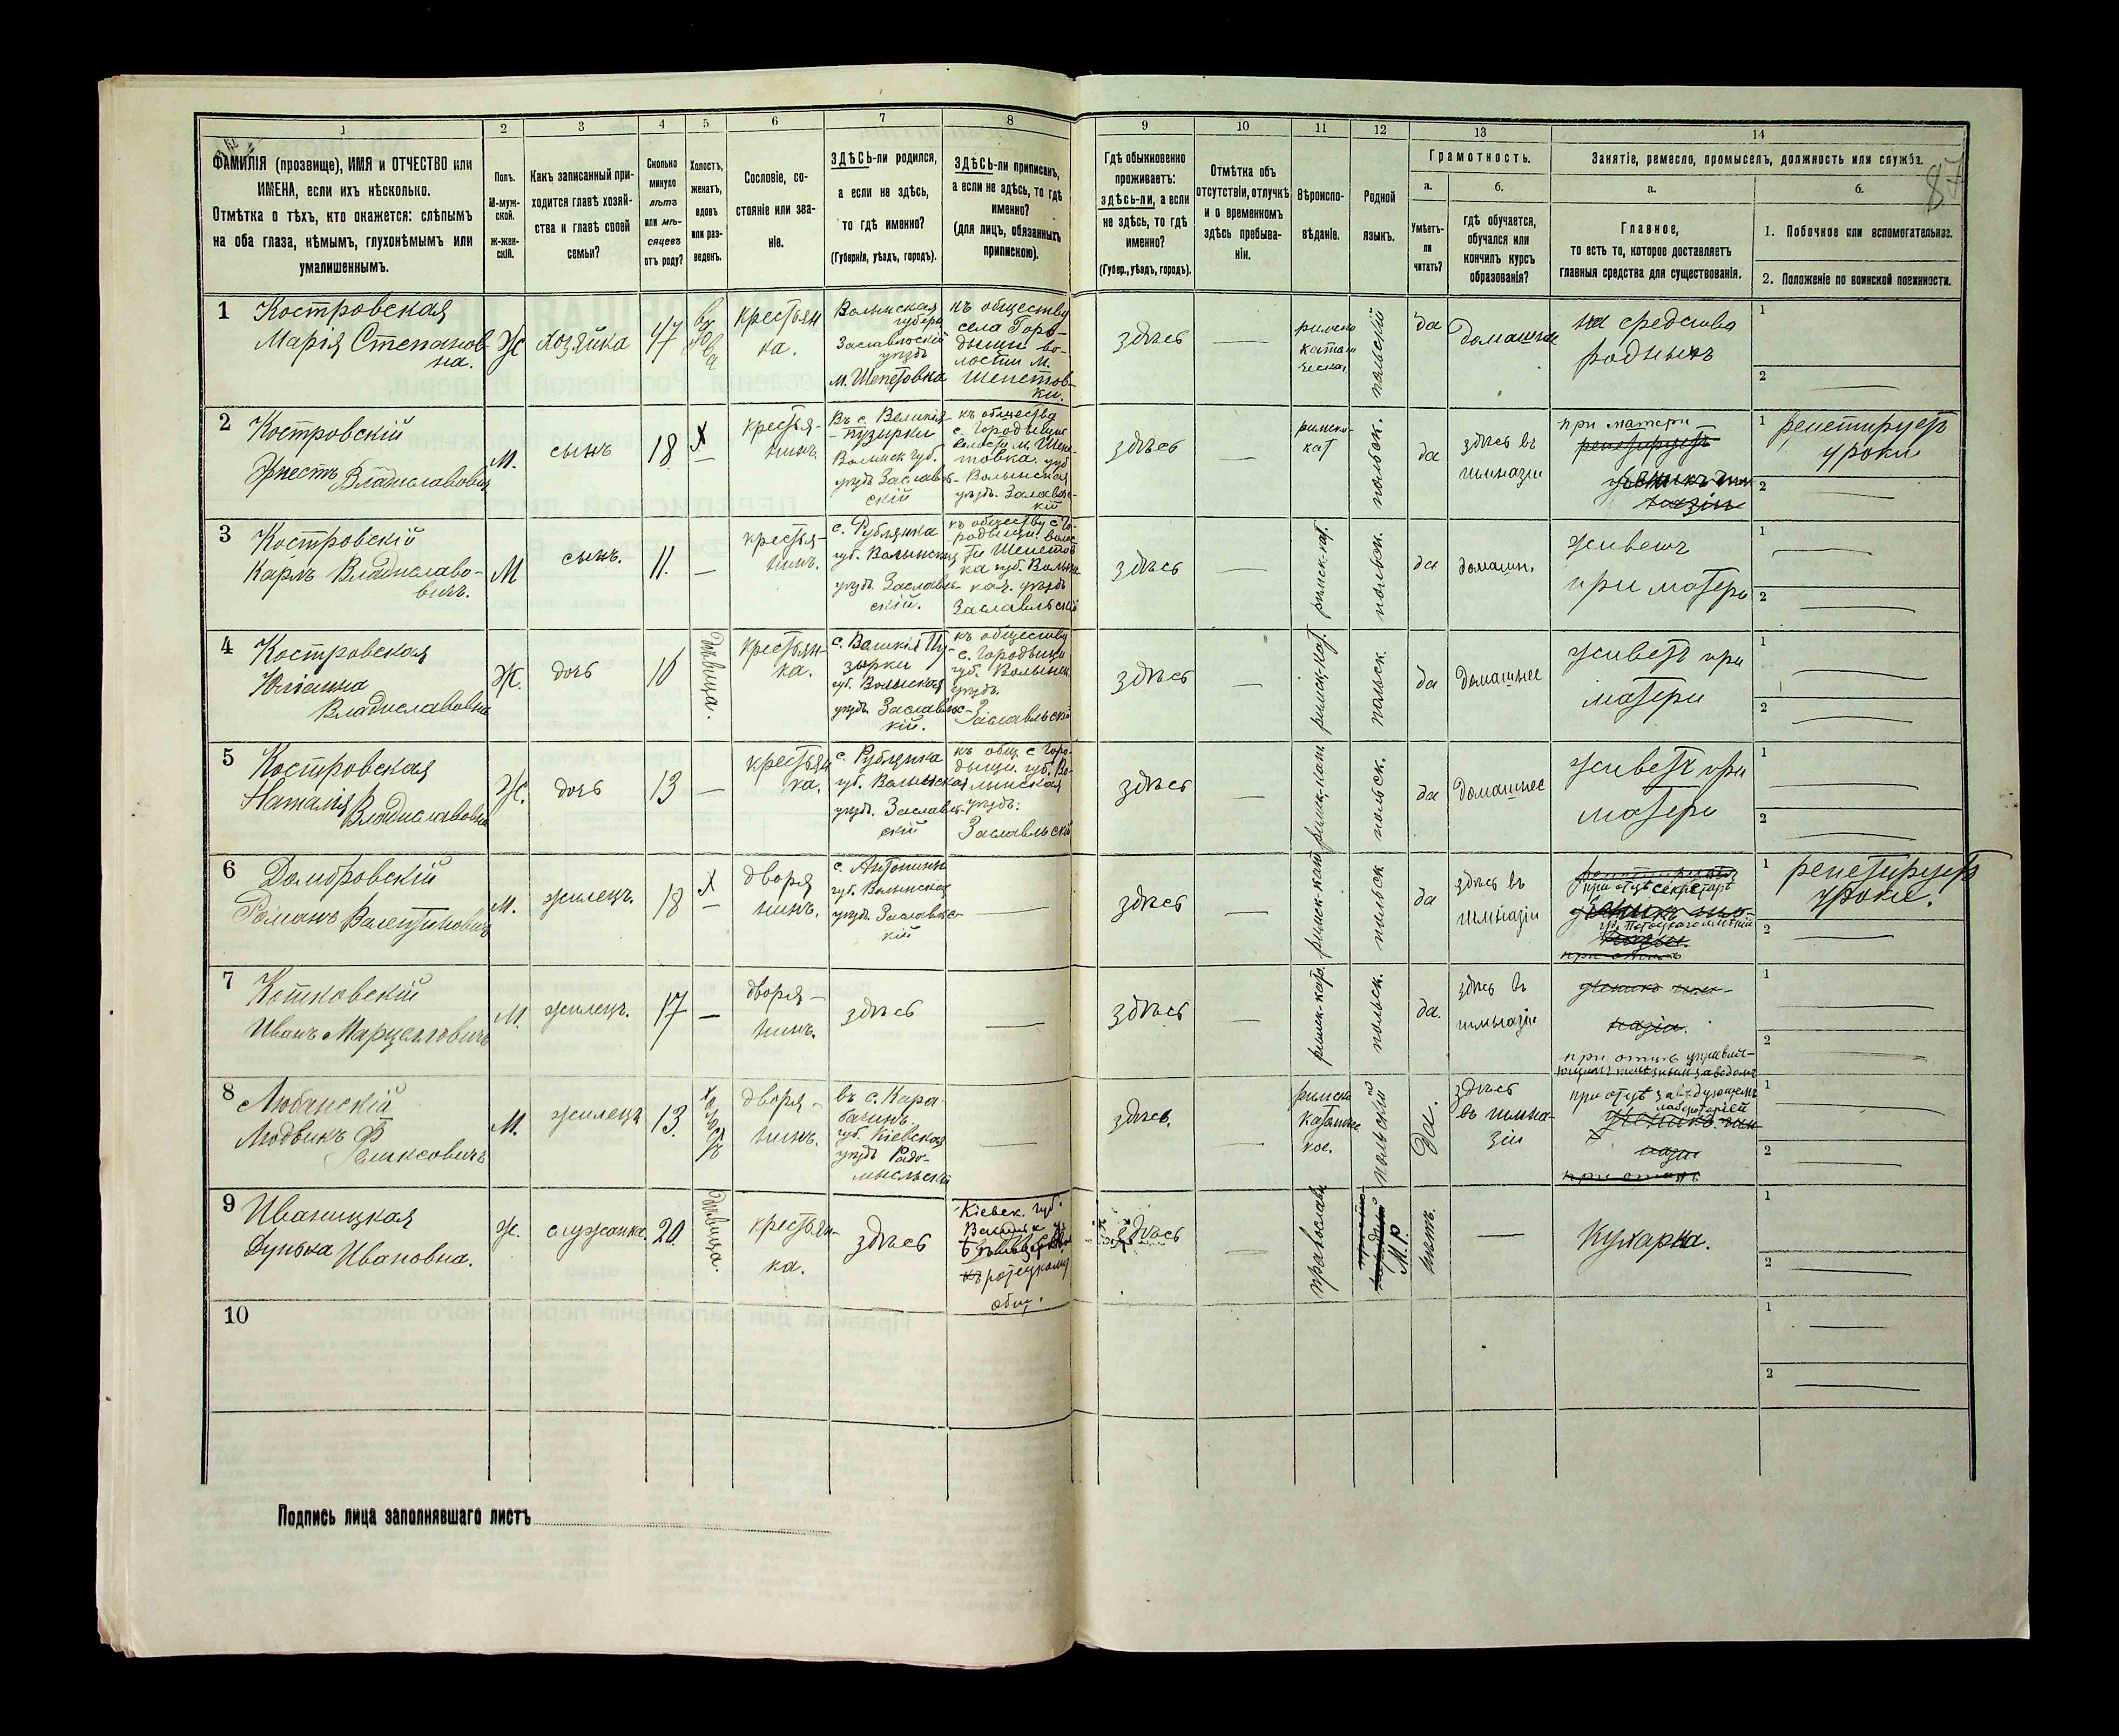 1 2 3 4 5 6 7 8 9 10 11 12 13 14
ФАМИЛІЯ (прозвище), ИМЯ и ОТЧЕСТВО или
ИМЕНА, если ихъ нѣсколько.
Отмѣтка о тѣхъ, кто окажется: слѣпымъ
на оба глаза, нѣмымъ, глухонѣмымъ или
умалишеннымъ.
Полъ.
М-муж-
ской.
ж-жен-
скій.
Какъ записанный при-
ходится главѣ хозяй-
ства и главѣ своей
семьи?
Сколько
минуло
лѣтъ
или мѣ-
сяцевъ
отъ роду?
Холостъ,
женатъ,
вдовъ
или раз-
веденъ.
Сословіе, со-
стояніе или зва-
ніе.
ЗДѢСЬ-ли родился,
а если не здѣсь,
то гдѣ именно?
(Губернія, уѣздъ, городъ).
ЗДѢСЬ-ли приписанъ,
а если не здѣсь, то гдѣ
именно?
(для лицъ, обязанныхъ
припискою).
Гдѣ обыкновенно
проживаетъ:
здѣсь-ли, а если
не здѣсь, то гдѣ
именно?
(Губер., уѣздъ, городъ).
Отмѣтка объ
отсутствіи, отлучкѣ
и о временномъ
здѣсь пребыва-
ніи.
Вѣроиспо-
вѣданіе.
Родной
языкъ.
Грамотность.
а.
Умѣетъ-
ли
читать?
б.
гдѣ обучается,
обучался или
кончилъ курсъ
образованія?
Занятіе, ремесло, промыселъ, должность или служба.
87
а.
Главное,
то есть то, которое доставляетъ
главныя средства для существованія.
б.
1. Побочное или вспомогательное.
2. Положеніе по воинской повинности.
1 Костровская
Марія Степанов-
на.
Ж
хозяйка
47
вдова
крестьян
ка.
Волынская
губерн
Заславльскій
уѣздъ
м. Шепетовка
къ обществу
села Горо-
дыщи во-
лости М.
Шепетов-
ки.
здѣсь
римско
катол
ческая
польскій
да
домашнее
на средства
родныхъ
1
2
2 Костровскій
Эрнестъ Владиславовичъ
М.
сынъ
18
Х
крестья-
нинъ.
Въ с. Великія-
-пузырки
Волынск губ.
уѣздъ Заславль-
скій
къ общества
с. Городыщи
волости м. Шепе-
товка. губ
Волынская
уѣздъ. Заславс-
кій
здѣсь
римско-
кат
польск.
да
здѣсь въ
гимназіи
при матери
репетируетъ
1 репетируетъ
уроки
2
3 Костровскій
Карлъ Владиславо-
вичъ.
М
сынъ.
11.
крестья-
нинъ.
с. Рублянка
губ. Волынская
уѣздъ. Заславль-
скій.
къ обществу с Го-
родыщи. волос
ти Шепетов
ка губ. Волын-
кая. уѣздъ
Заславльскій
здѣсь
римск-кат.
польск.
да
домашн.
живетъ
при матери
1
2
4 Костровская
Юліанна
Владиславовна
Ж.
дочь
16
дѣвица.
крестьян-
ка.
с. Великія Пу-
зырки
губ. Волынская
уѣздъ. Заславльс-
кій.
къ обществу
с. Городыщи
губ. Волынск.
уѣздъ.
Заславльскій
здѣсь
римск-кат.
польск.
да
домашнее
живетъ при
матери
1
2
5 Костровская
Наталія Владиславовна
Ж.
дочь
13
крестьян
ка.
с. Рублянка
губ. Волынская
уѣздъ. Заславль-
скій
къ общ. с Горо-
дыщи. губ. Во-
лынская
уѣздъ:
Заславльскій
здѣсь
римск-кат.
польск.
да
домашнее
живетъ при
матери
1
2
6 Домбровскій
Романъ Валентиновичъ
М.
жилецъ.
18
Х
дворя
нинъ.
с. Антонины
губ. Волынская
уѣздъ Заславльс-
кій
здѣсь
римск-кат.
польск
да
здѣсь въ
гимназіи
репетируетъ
при отцѣ секретарѣ
при отцѣ
1 репетируетъ
уроки.
2
7 Котковскій
Иванъ Марцелловичъ
М.
жилецъ.
17
дворя-
нинъ.
здѣсь
здѣсь
римск-кат.
польск.
да.
здѣсь въ
гимназіи
ученикъ гим-
назіи.
1
2
8 Любанскій
Людвикъ Феликсовичъ
М.
жилецъ
13.
холостъ
дворя-
нинъ.
въ с. Кара-
бачинъ.
губ. Кіевская
уѣздъ Радо-
мысльскій
здѣсь.
римско
католиче
кое.
польскій
да.
здѣсь
въ гимна-
зіи
при отцѣ завѣдующемъ
лабораторіей
ученикъ гим
назіи
при отцѣ.
1
2
9 Иваницкая
Дунька Ивановна.
ж.
служанка.
20
дѣвица.
крестьян-
ка.
здѣсь
Кіевск. губ.
общ.
здѣсь
православн.
М.Р.
нѣтъ.
Кухарка.
1
2
10
1
2
Подпись лица заполнявшаго листъ